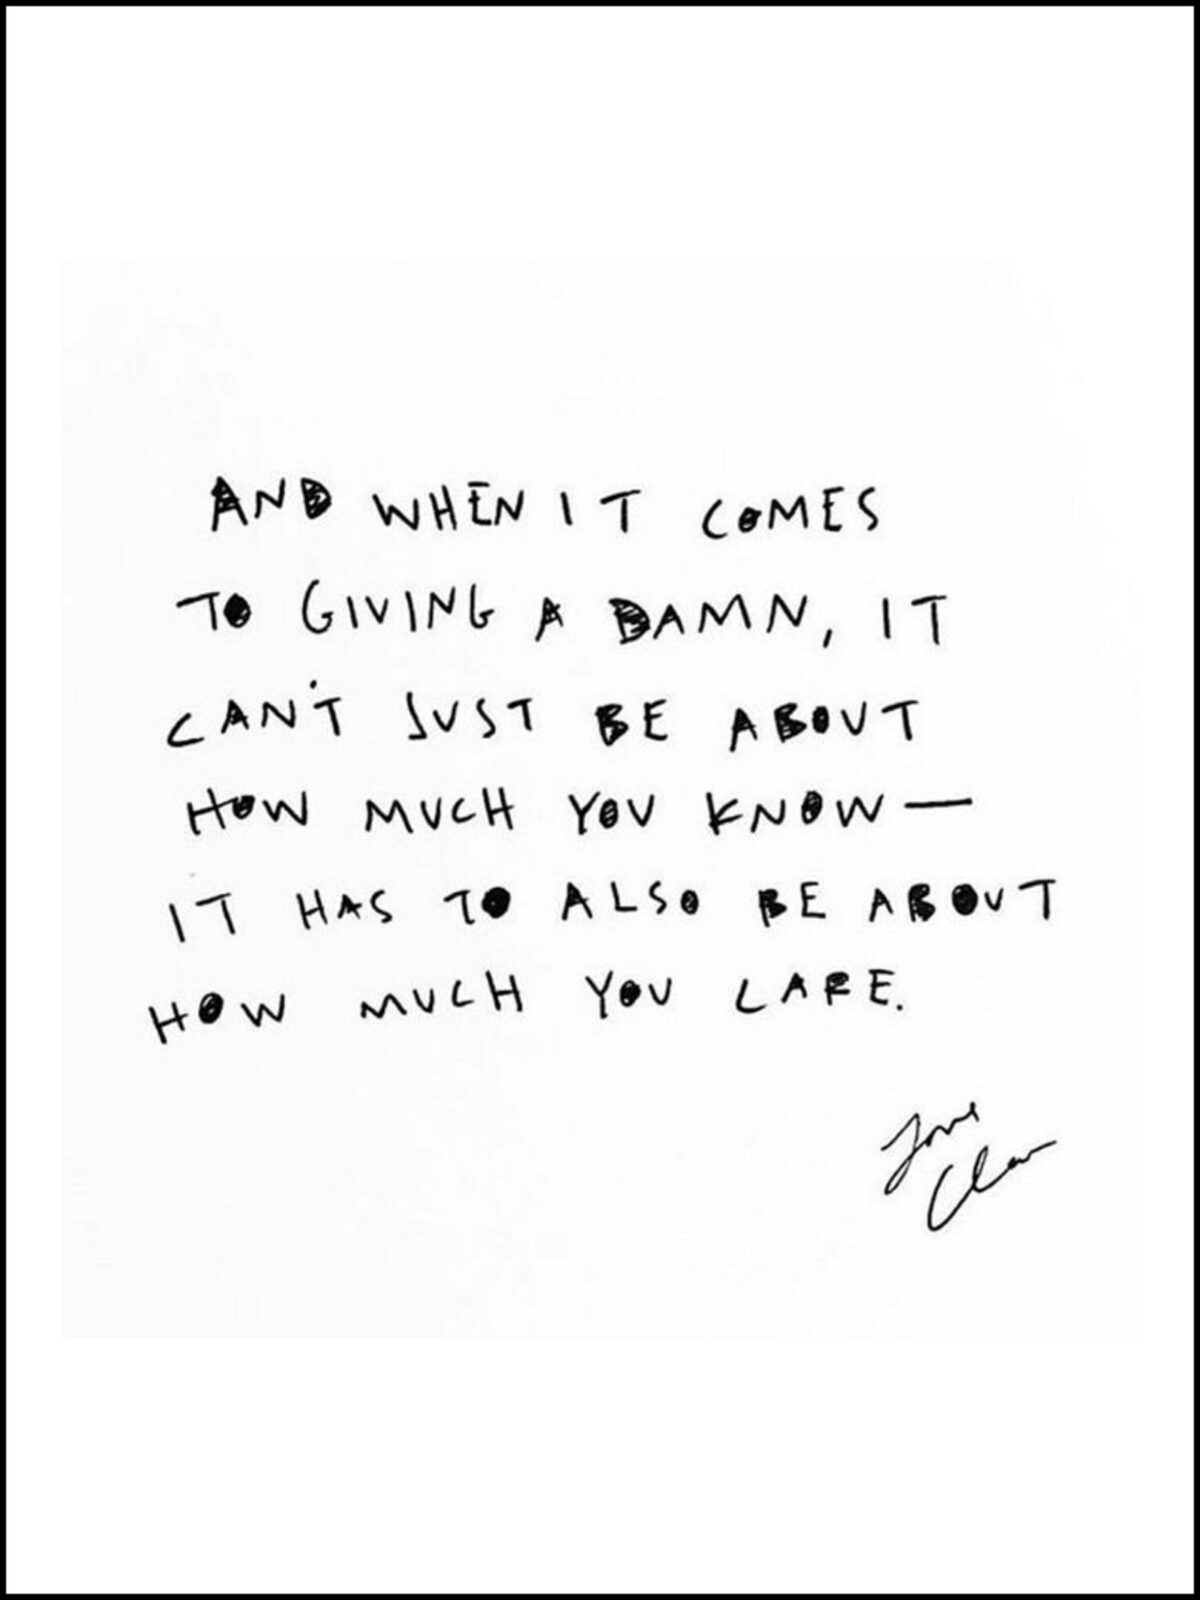 AND WHEN IT COMES
TO GIVING A DAMN, IT
CAN'T JUST BE ABOUT
HOW MUCH YOU KNOW—
IT HAS TO ALSO BE ABOUT
HOW MUCH YOU CARE.
Love